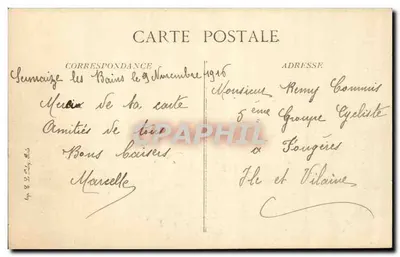 CARTE POSTALE
CORRESPONDANCE
ADRESSE
Sermaize les Bains le 9 Novembre 1916
Merci de ta carte
Amitiés de tous
Bons baisers
Marcelle
Monsieur Remy Commis
5ème Groupe Cycliste
à Fougères
Ile et Vilaine
CPARAMA